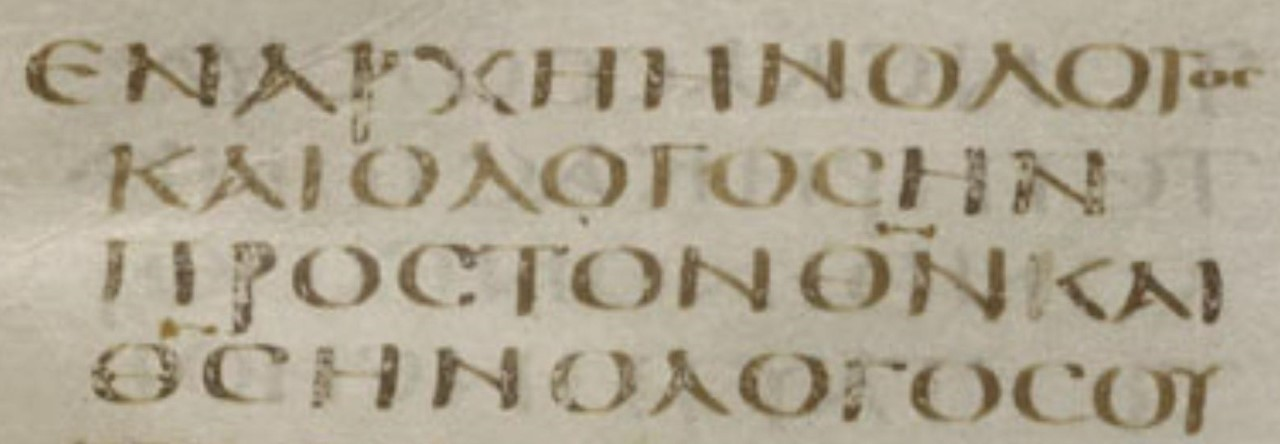 ΕΝΑΡΧΗΗΝΟΛΟΓΟϹ
ΚΑΙΟΛΟΓΟϹΗΝ
ΠΡΟϹΤΟΝΘ̅Ν̅ΚΑΙ
Θ̅Ϲ̅ΗΝΟΛΟΓΟϹΟΥ